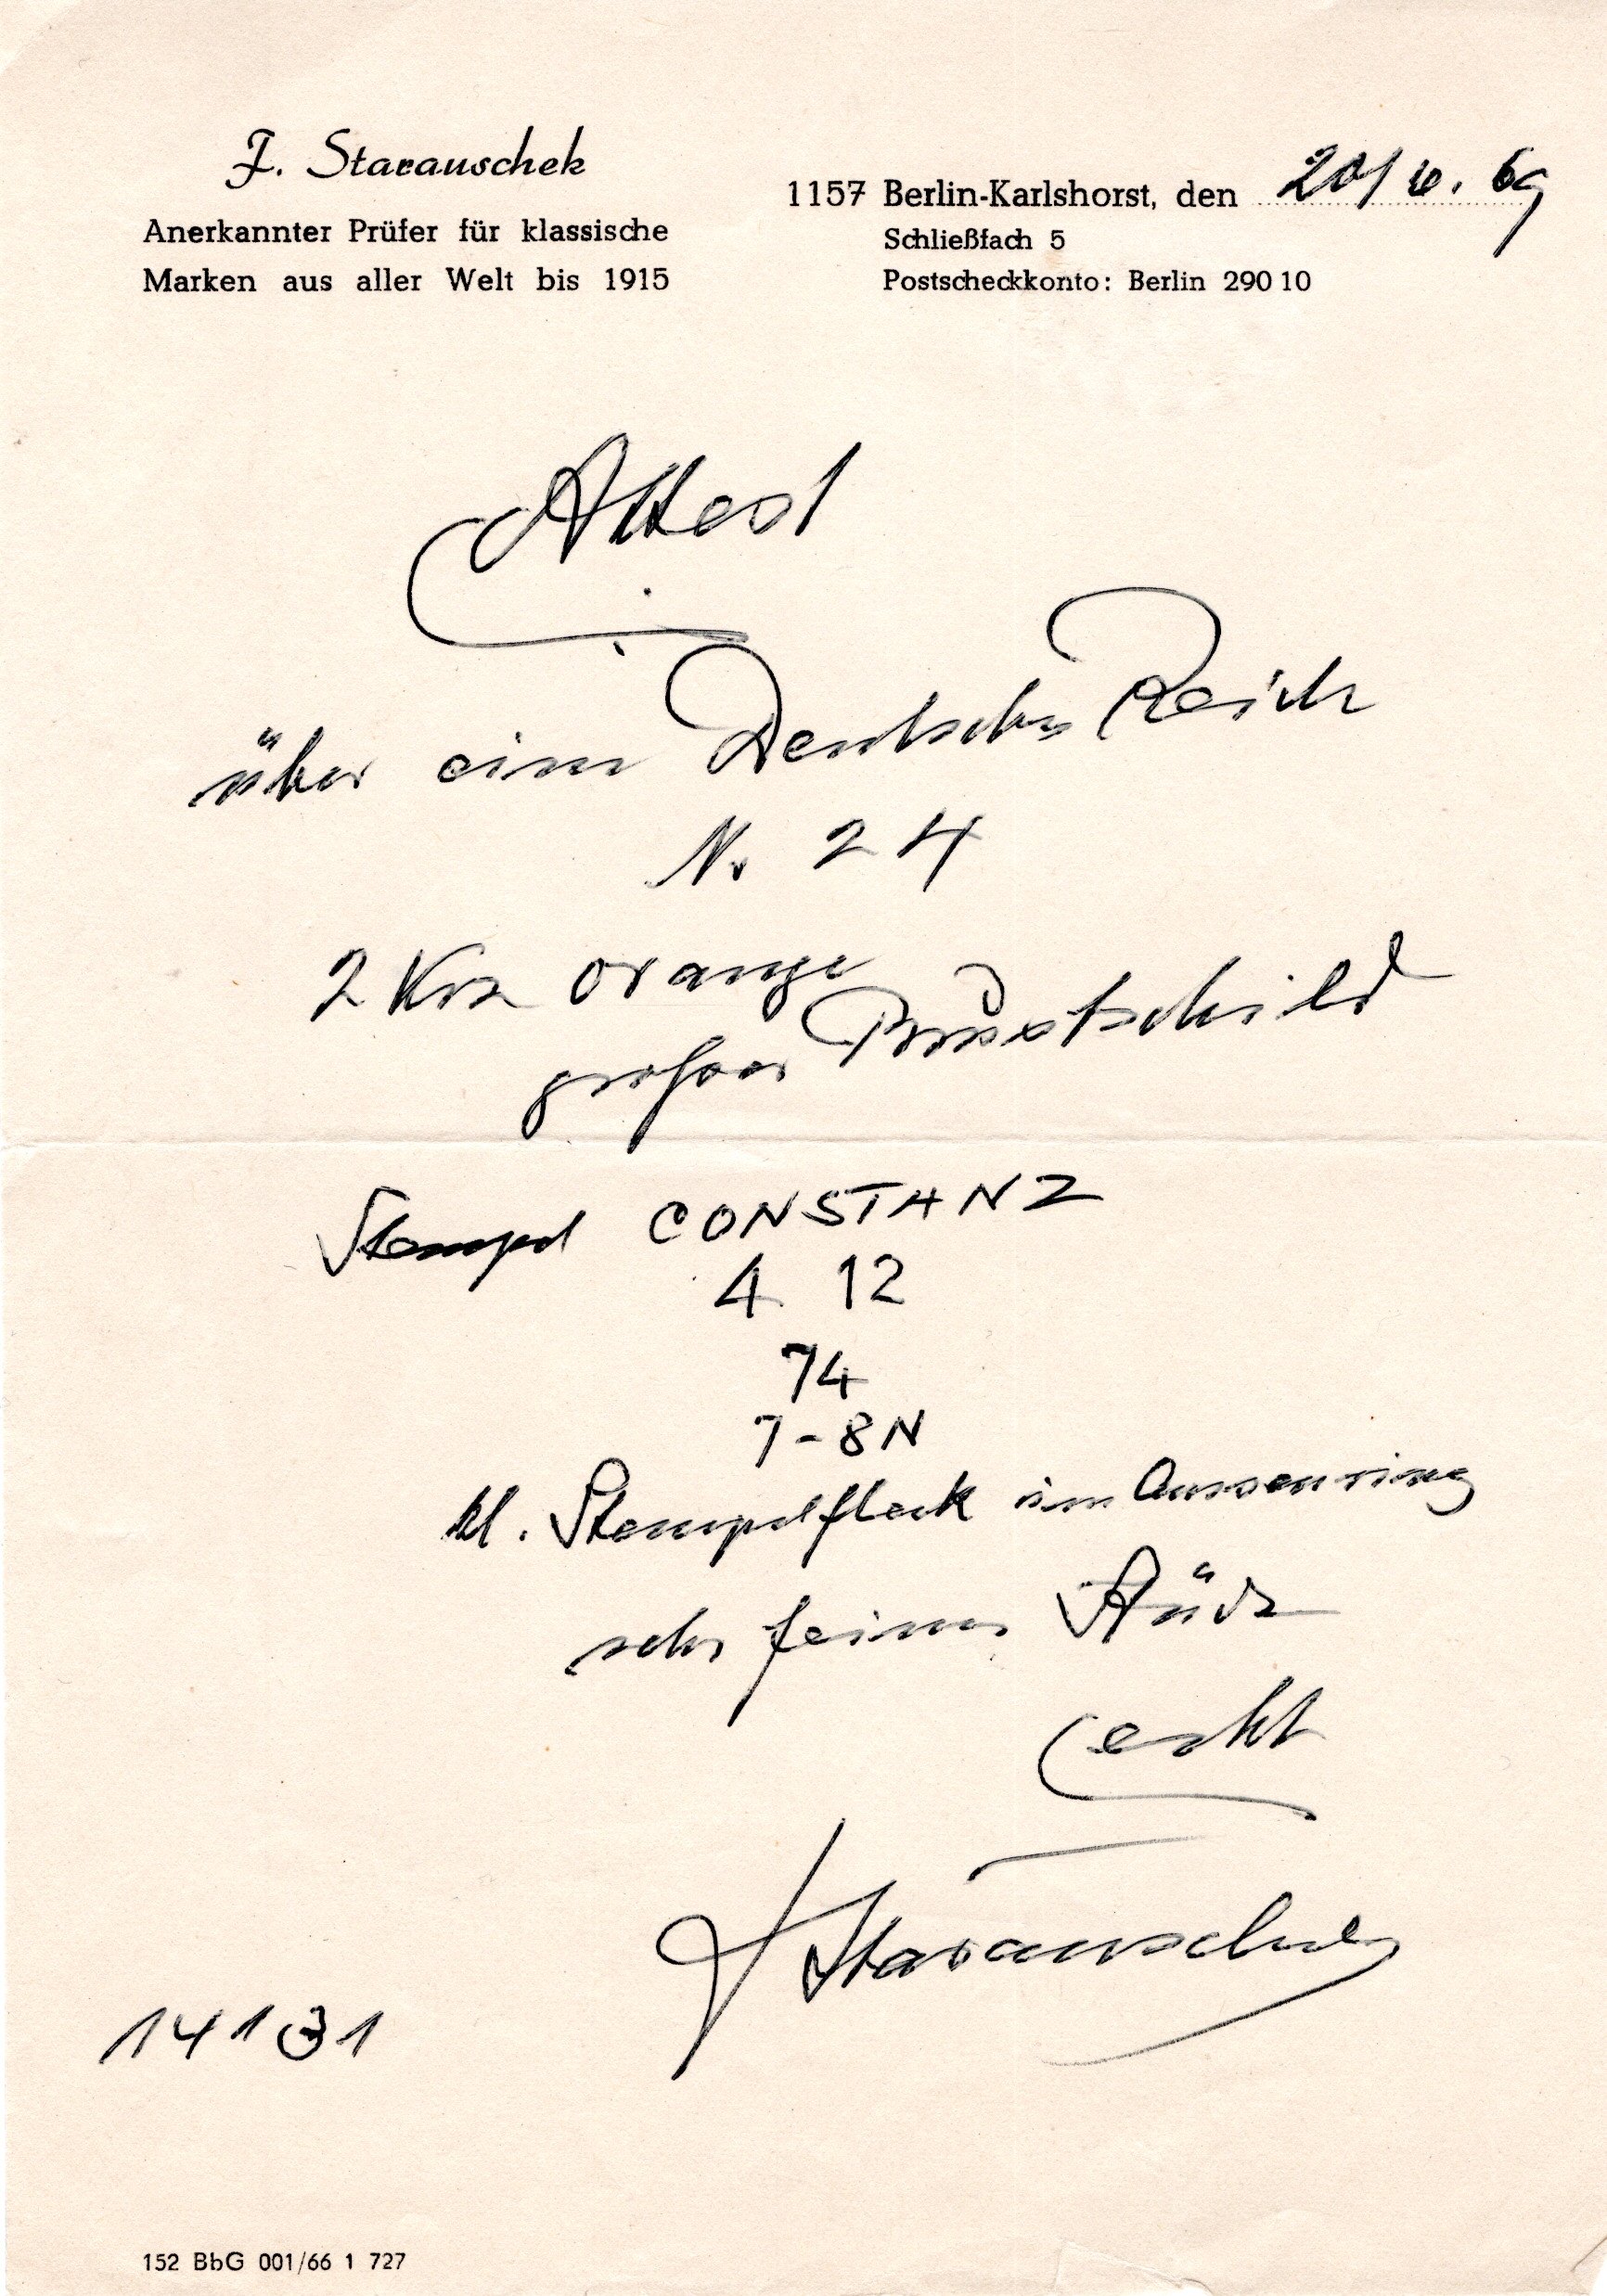 J. Starauschek
Anerkannter Prüfer für klassische
Marken aus aller Welt bis 1915
1157 Berlin-Karlshorst, den 20/ 69
Schließfach 5
Postscheckkonto: Berlin 290 10
Attest
über eine Deutsches Reich
N. 24
2 Krz orange
grosser Brustschild
Stempel CONSTANZ
4 12
74
7-8N
kl. Stempelfleck im Aussenring
sehr feines Stück
echt
J Starauschek
14131
152 BbG 001/66 1 727